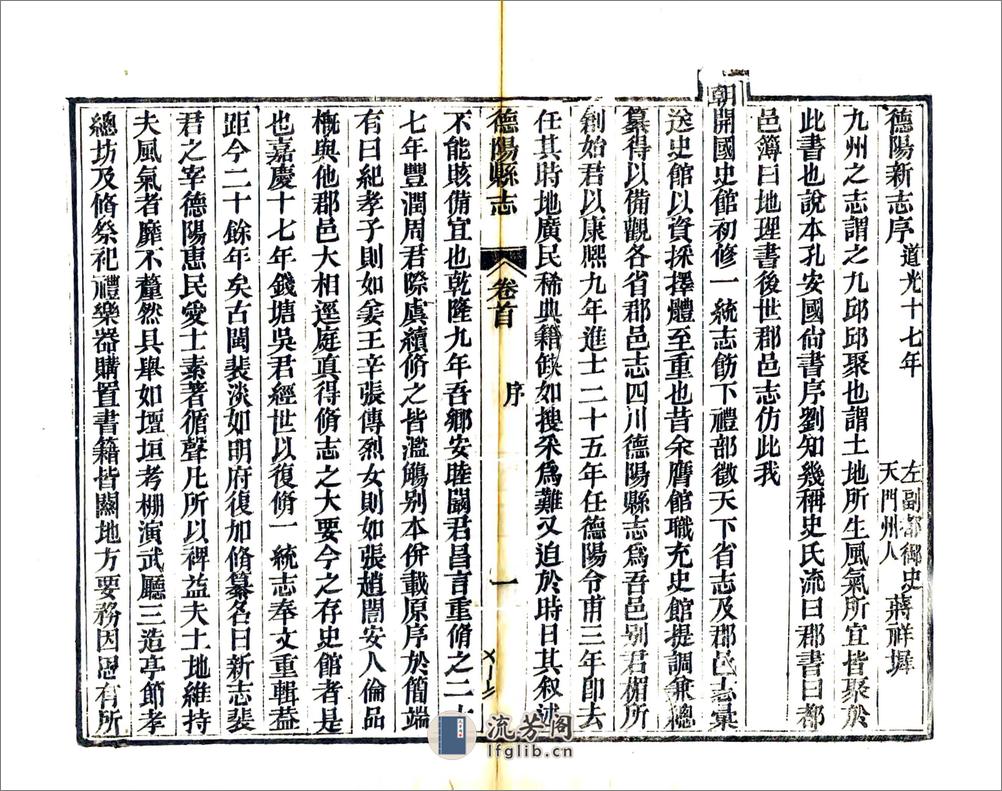 德陽新志序 道光十七年 左副都御史 蔣祥墀
天門州人
九州之志謂之九邱邱聚也謂土地所生風氣所宜皆聚於
此書也說本孔安國尙書序劉知幾稱史氏流曰郡書曰都
邑簿曰地理書後世郡邑志仿此我
朝開國史館初修一統志飭下禮部徵天下省志及郡邑志彙
送史館以資採擇軆至重也昔余膺館職充史館提調兼總
纂得以備觀各省郡邑志四川德陽縣志爲吾邑别君楣所
創始君以康熙九年進士二十五年任德陽令甫三年卽去
任其時地廣民稀典籍缺如搜采爲難又迫於時日其叙述
德陽縣志 卷首 序 一
不能賅備宜也乾隆九年吾鄉安陸闞君昌言重脩之二十
七年豐潤周君際虞續脩之皆濫觴别本併載原序於簡端
有曰紀孝子則如姜王辛張傳烈女則如張趙誾安人倫品
槪與他郡邑大相逕庭眞得脩志之大要今之存史館者是
也嘉慶十七年錢塘吳君經世以復脩一統志奉文重輯葢
距今二十餘年矣古閩裴淡如明府復加脩纂名曰新志裴
君之宰德陽惠民愛士素著循聲凡所以裨益夫土地維持
夫風氣者靡不釐然具舉如壇垣考棚演武廳三造亭節孝
總坊及脩祭祀禮樂器購置書籍皆關地方要務因恩有所
流芳阁
lfglib.cn